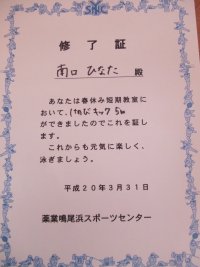 修了証
南口 ひなた 殿
あなたは春休み短期教室に
おいて、けのびキック 5m
ができましたのでこれを証し
ます。
これからも元気に楽しく、
泳ぎましょう。
平成20年3月31日
薬業鳴尾浜スポーツセンター